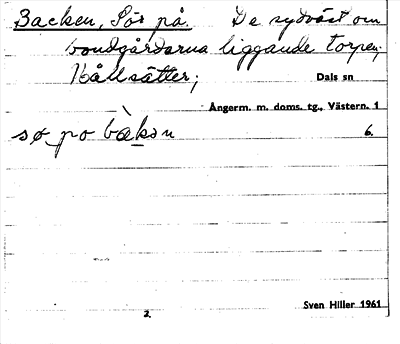 Backen, Sör på. De sydväst om
bondgårdarna liggande torpen;
Hållsätter;
Dals sn
Ångerm. m. doms. tg., Västern. 1
sø po bàkən 6.
2. Sven Hiller 1961